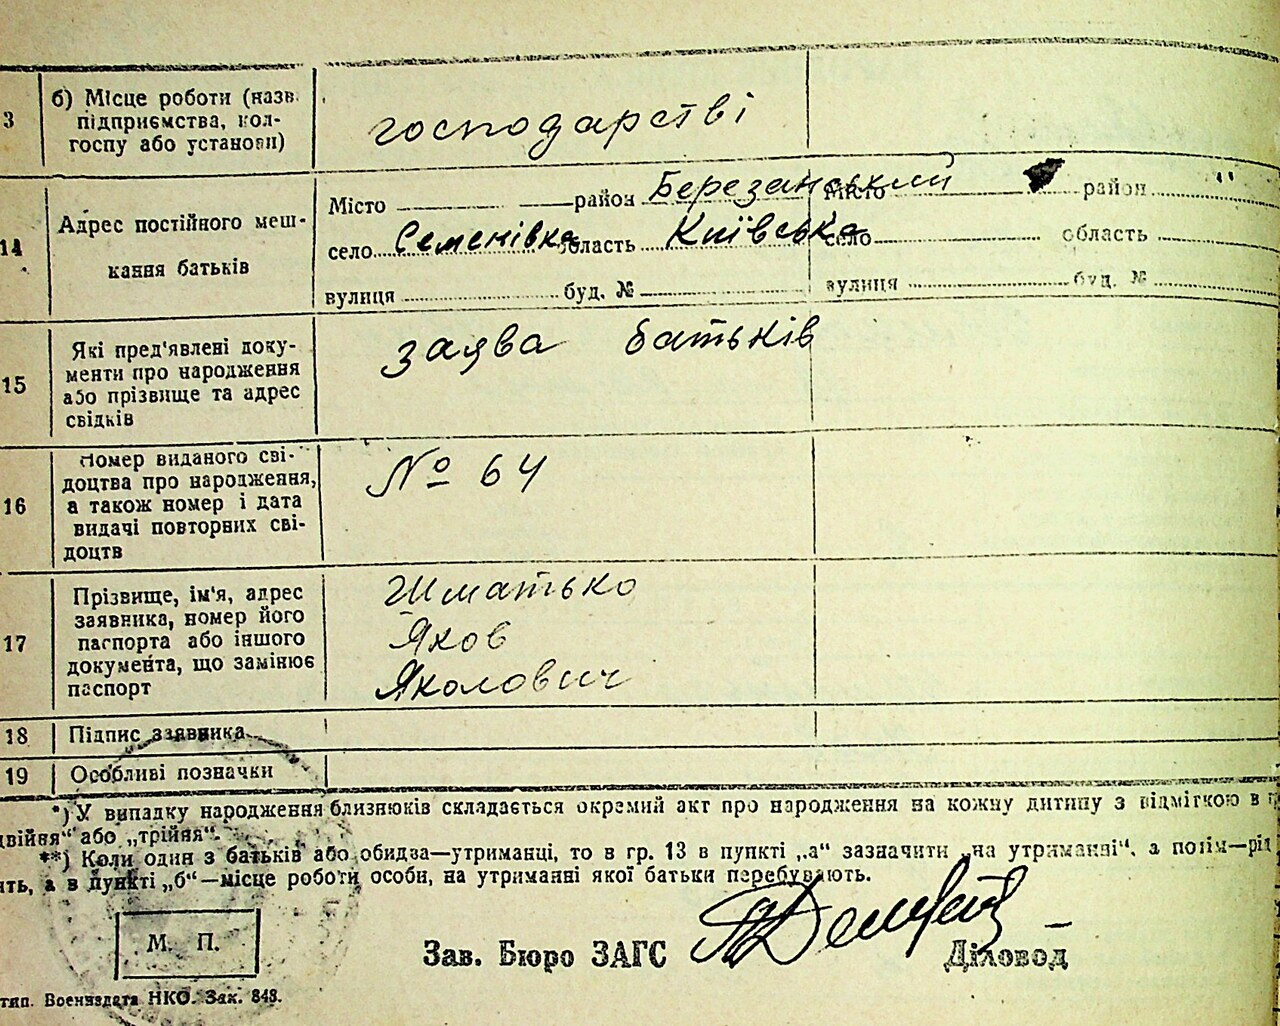 3 б) Місце роботи (назв.
підприємства, кол-
госпу або установи)
господарстві
14 Адрес постійного меш-
кання батьків
Місто район Березанський Місто район "
село Семенівка область Київська село область
вулиця буд. № вулиця буд. №
15 Які пред'явлені доку-
менти про народження
або прізвище та адрес
свідків
заява батьків
16 Номер виданого сві-
доцтва про народження,
а також номер і дата
видачі повторних сві-
доцтв
№ 64
17 Прізвище, ім'я, адрес
заявника, номер його
паспорта або іншого
документа, що замінює
паспорт
Шматько
Яков
Яколович
18 Підпис заявника
19 Особливі позначки
*) У випадку народження близнюків складається окремий акт про народження на кожну дитину з відміткою в г
двійня" або „трійня".
**) Коли один з батьків або обидва—утриманці, то в гр. 13 в пункті „а" зазначити „на утриманні", а потім—рід
ить, а в пункті „б"—місце роботи особи, на утриманні якої батьки перебувають.
М. П.
Зав. Бюро ЗАГС Діловод
тип. Воениздата НКО. Зак. 848.